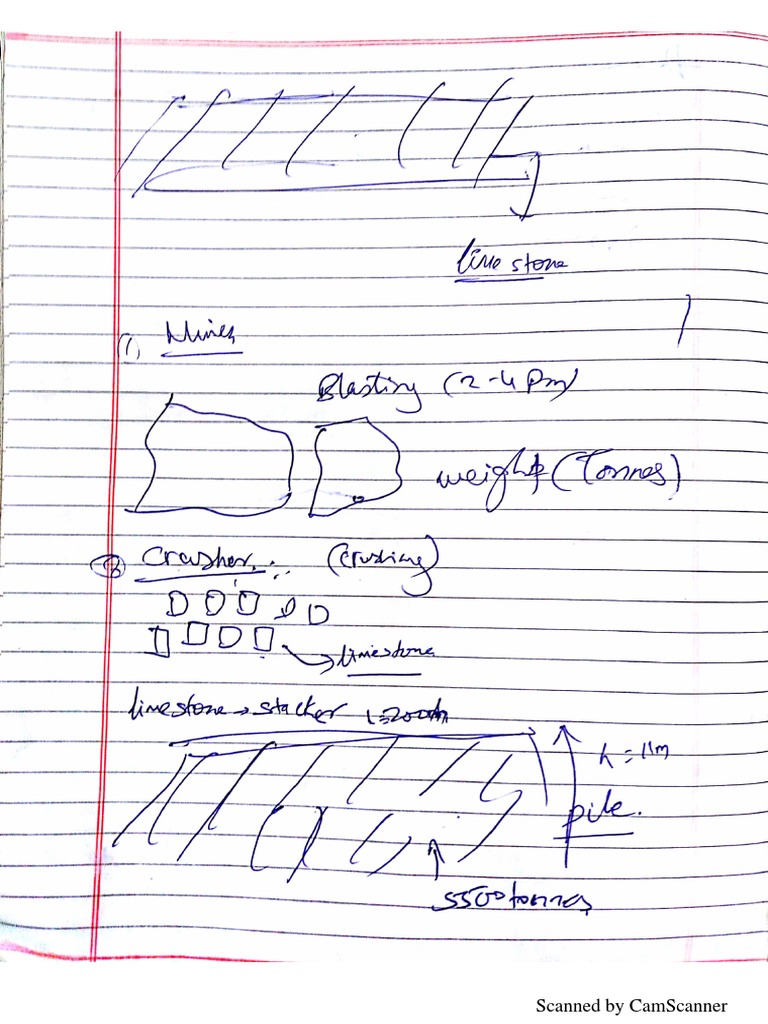 limestone
(1) Mines
Blasting (2-4 Pm)
weight (Tonnes)
(2) Crusher (crushing)
limestone
limestone → stacker l=200m
h=11m
pile.
5500 tonnes
Scanned by CamScanner